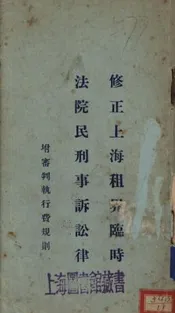 修正上海租界臨時
法院民刑事訴訟律
附審判執行費規則
上海圖書館藏書